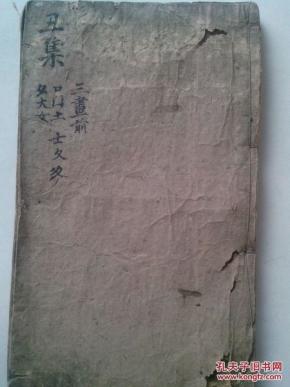 丑集
三畫前
口囗土士夂夊
夕大女
孔夫子旧书网